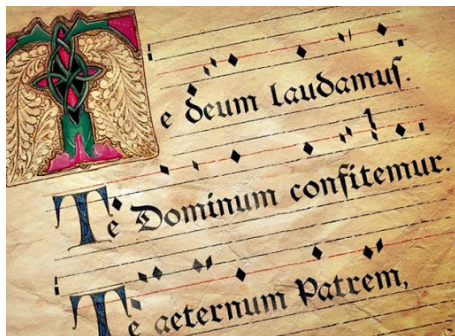 Te deum laudamus.
Te Dominum confitemur.
Te aeternum Patrem,